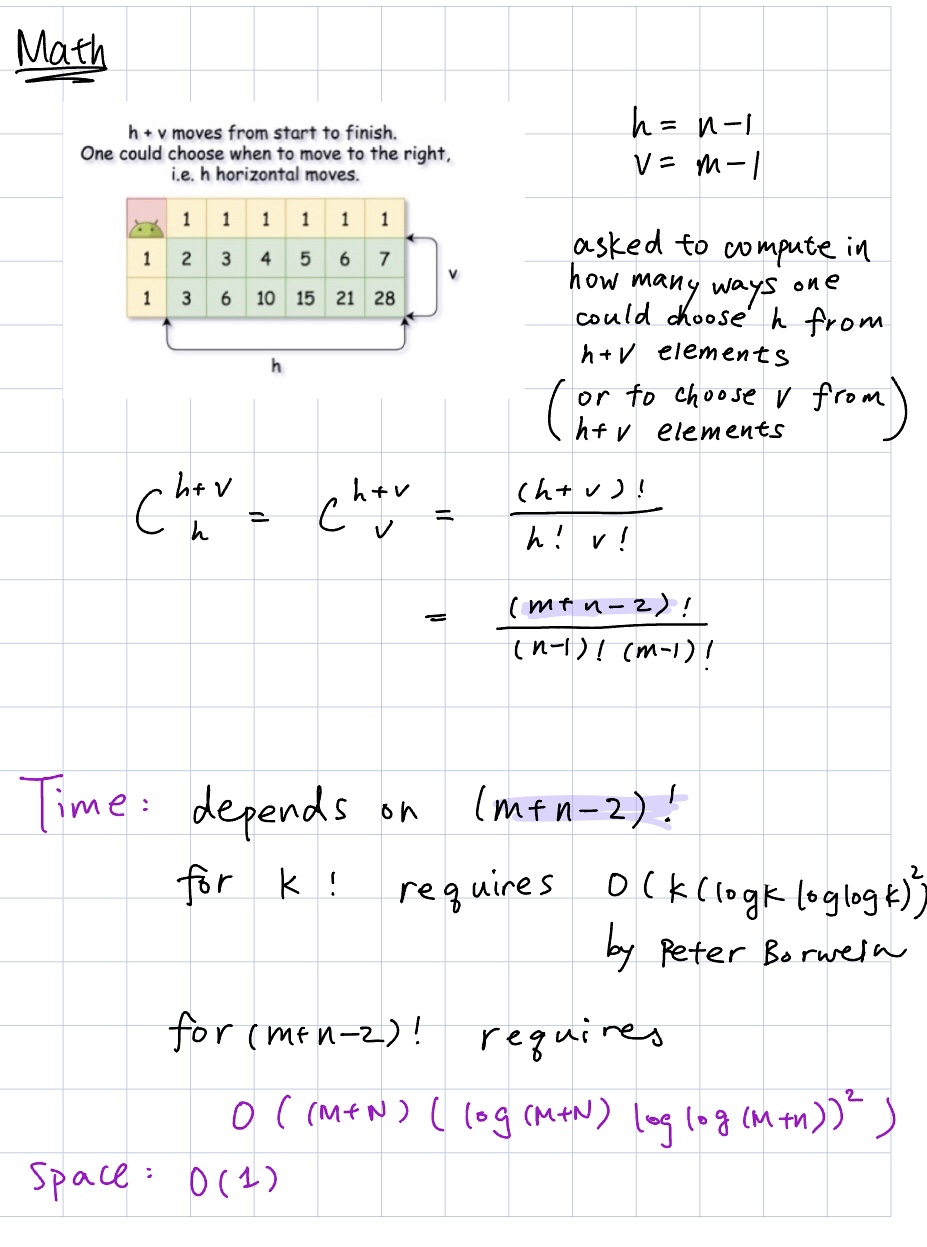 Math
h + v moves from start to finish.
One could choose when to move to the right,
i.e. h horizontal moves.
1 1 1 1 1 1
1 2 3 4 5 6 7
1 3 6 10 15 21 28
v
h
h = n-1
v = m-1
asked to compute in
how many ways one
could choose h from
h+v elements
(or to choose v from
h+v elements)
C^{h+v}_h = C^{h+v}_v = (h+v)! / h! v!
= (m+n-2)! / (n-1)! (m-1)!
Time: depends on (m+n-2)!
for k! requires O(k(logk loglogk)²)
by Peter Borwein
for (m+n-2)! requires
O((M+N)(log(M+N) log log(M+n))²)
Space: O(1)